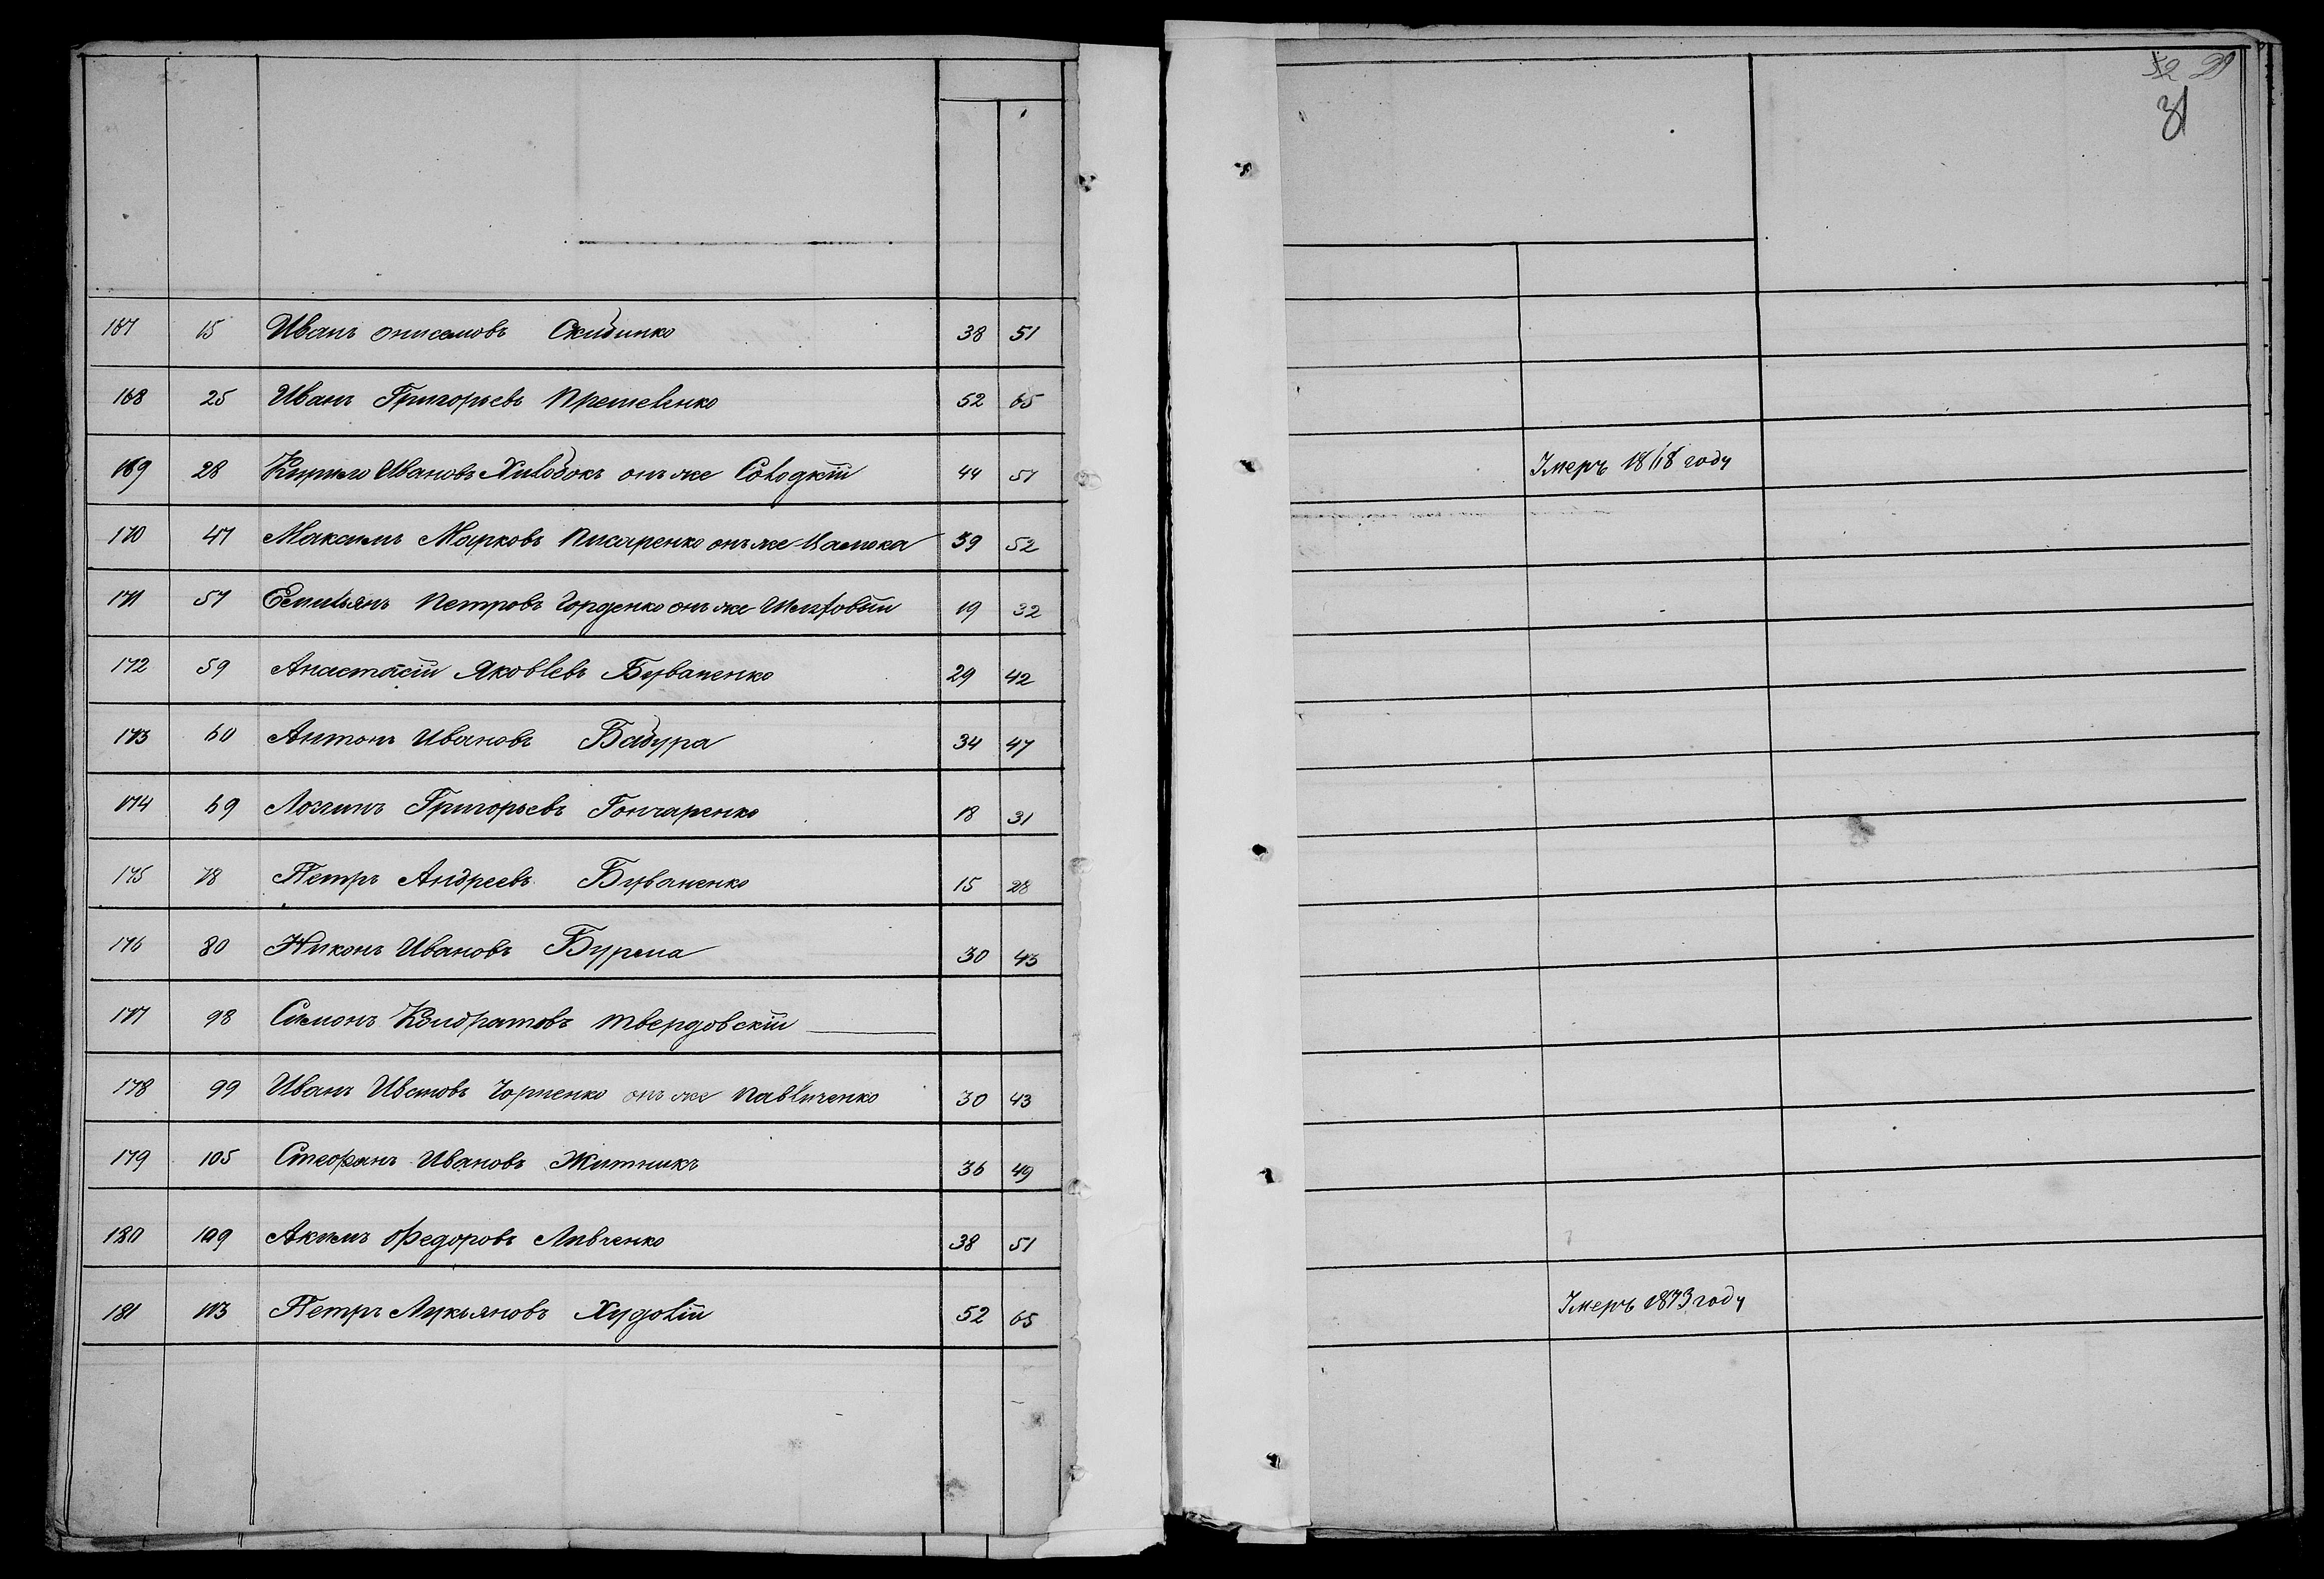 52 29
31
167 15 Иванъ Онисимовъ Скибинко 38 51
168 25 Иванъ Григорьевъ 52 65
169 28 Кирило Ивановъ онъ же Солодкій 44 57 Умеръ 1868 году
170 47 Максимъ Марковъ Писаренко онъ же 39 52
171 57 Емильянъ Петровъ Горденко онъ же 19 32
172 59 Анастасій Яковлевъ Буваненко 29 42
173 60 Антонъ Ивановъ Бабура 34 47
174 69 Логинъ Григорьевъ Гончаренко 18 31
175 78 Петръ Андреевъ Буваненко 15 28
176 80 Никонъ Ивановъ Бурма 30 43
177 98 Симонъ Кондратовъ Твердовскій
178 99 Иванъ Ивановъ Чорненко онъ же Павличенко 30 43
179 105 Стефанъ Ивановъ Житникъ 36 49
180 109 Акимъ Федоровъ Ливченко 38 51
181 113 Петръ Лукьяновъ Худолій 52 65 Умеръ 1873 году